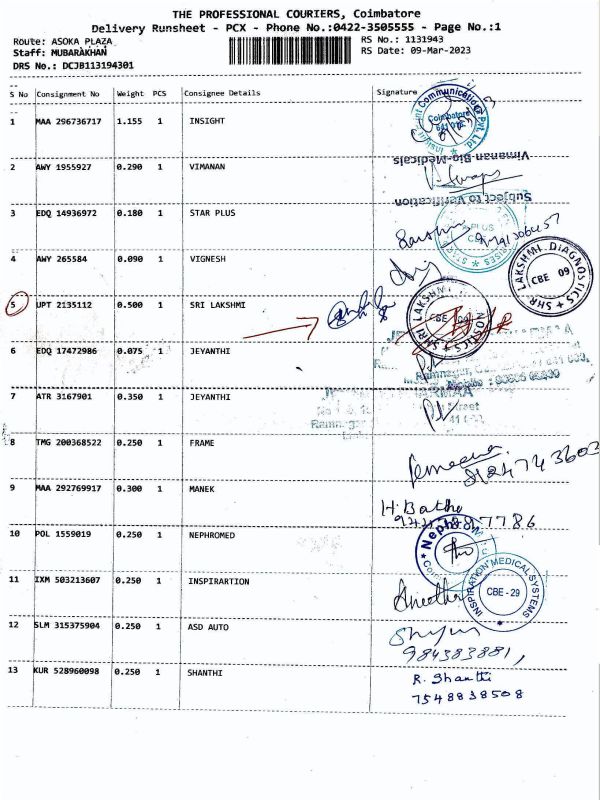 THE PROFESSIONAL COURIERS, Coimbatore
Delivery Runsheet - PCX - Phone No.:0422-3505555 - Page No.:1
Route: ASOKA PLAZA
RS No.: 1131943
Staff: MUBARAKHAN
RS Date: 09-Mar-2023
DRS No.: DCJB113194301
S No Consignment No Weight PCS Consignee Details Signature
1 MAA 296736717 1.155 1 INSIGHT
Coimbatore
Vimanan Bio-Medicals
2 AWY 1955927 0.290 1 VIMANAN
Subject to Verification
3 EDQ 14936972 0.180 1 STAR PLUS
4 AWY 265584 0.090 1 VIGNESH
LAKSHMI DIAGNOSTICS * SHR
CBE 09
5 UPT 2135112 0.500 1 SRI LAKSHMI
6 EDQ 17472986 0.075 1 JEYANTHI
7 ATR 3167901 0.350 1 JEYANTHI
8 TMG 200368522 0.250 1 FRAME
9 MAA 292769917 0.300 1 MANEK
10 POL 1559019 1 0.250 1 NEPHROMED
11 IXM 503213607 0.250 1 INSPIRARTION
INSPIRATION MEDICAL SYSTEMS
CBE - 29
12 SLM 315375904 0.250 1 ASD AUTO
984383881,
13 KUR 528960098 0.250 1 SHANTHI
R. Shanthi
7548838508